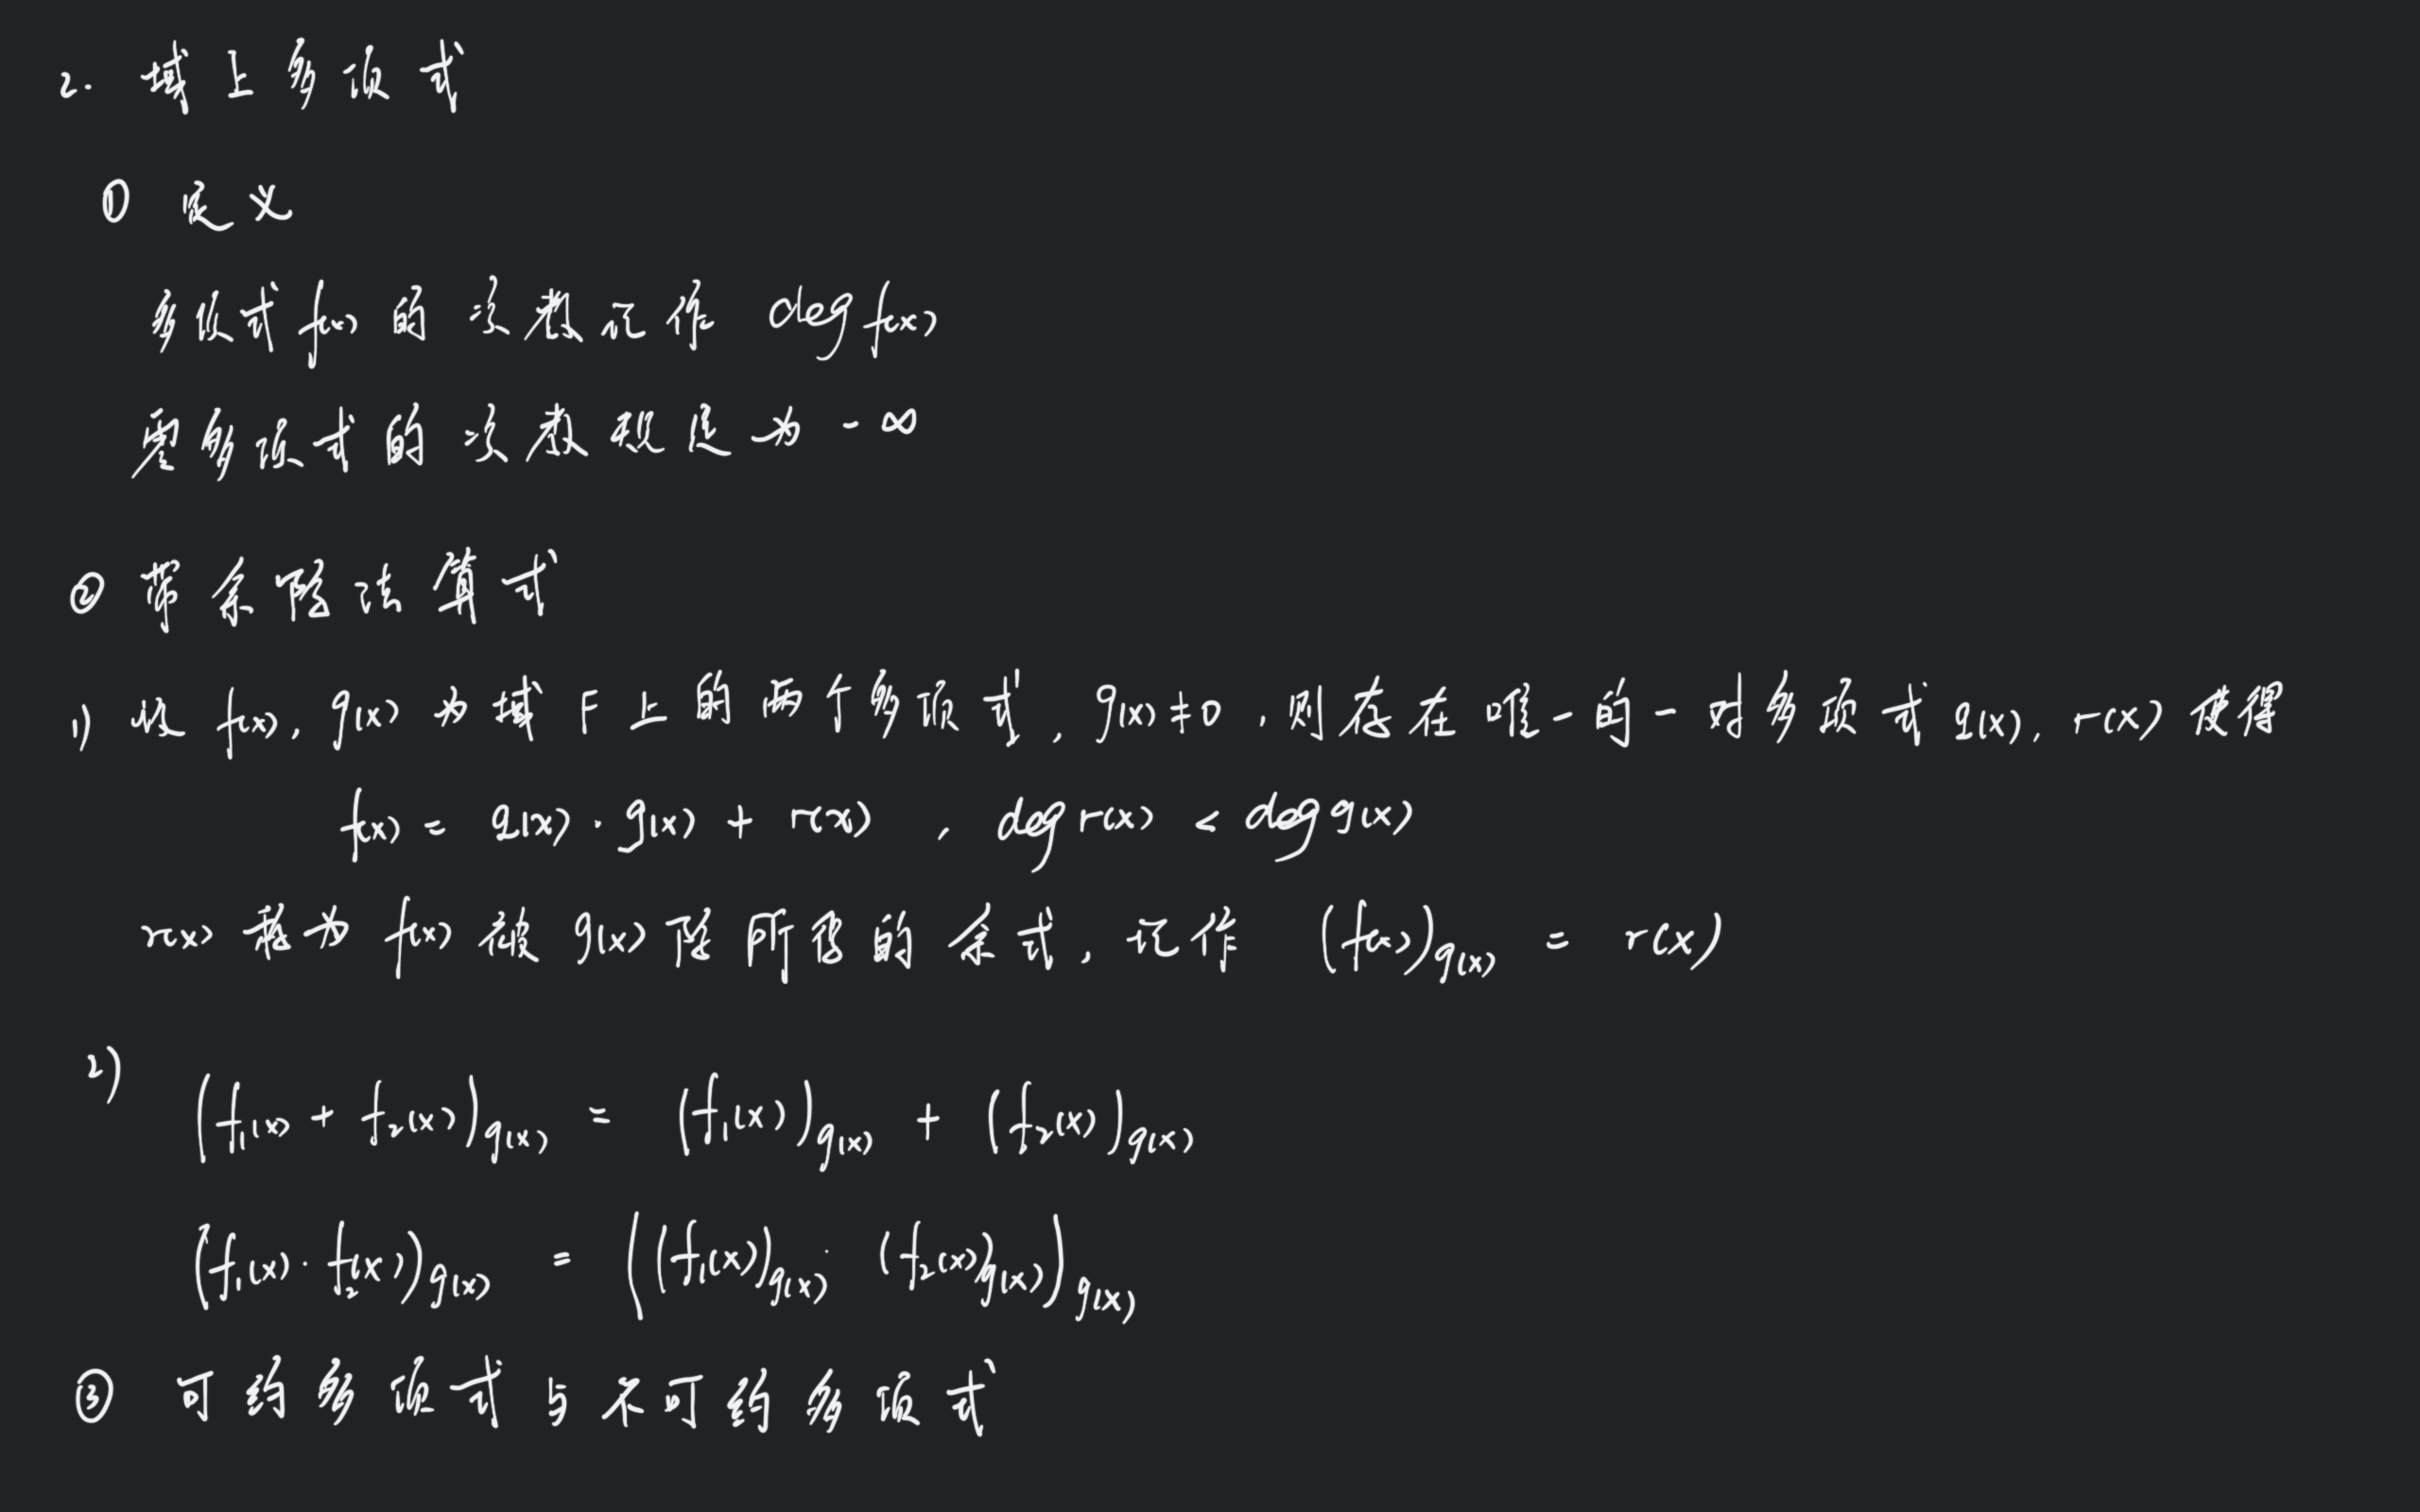 2. 域上多项式
① 定义
多项式f(x)的次数记作 deg f(x)
零多项式的次数规定为 -∞
② 带余除法算式
1) 设 f(x), g(x) 为域 F 上的两个多项式, g(x)≠0, 则存在唯一的一对多项式 q(x), r(x) 使得
f(x) = q(x)·g(x) + r(x) , deg r(x) < deg g(x)
r(x) 称为 f(x) 被 g(x) 除所得的余式, 记作 (f(x))_{g(x)} = r(x)
2) (f₁(x) + f₂(x))_{g(x)} = (f₁(x))_{g(x)} + (f₂(x))_{g(x)}
(f₁(x)·f₂(x))_{g(x)} = ((f₁(x))_{g(x)}·(f₂(x))_{g(x)})_{g(x)}
③ 可约多项式与不可约多项式